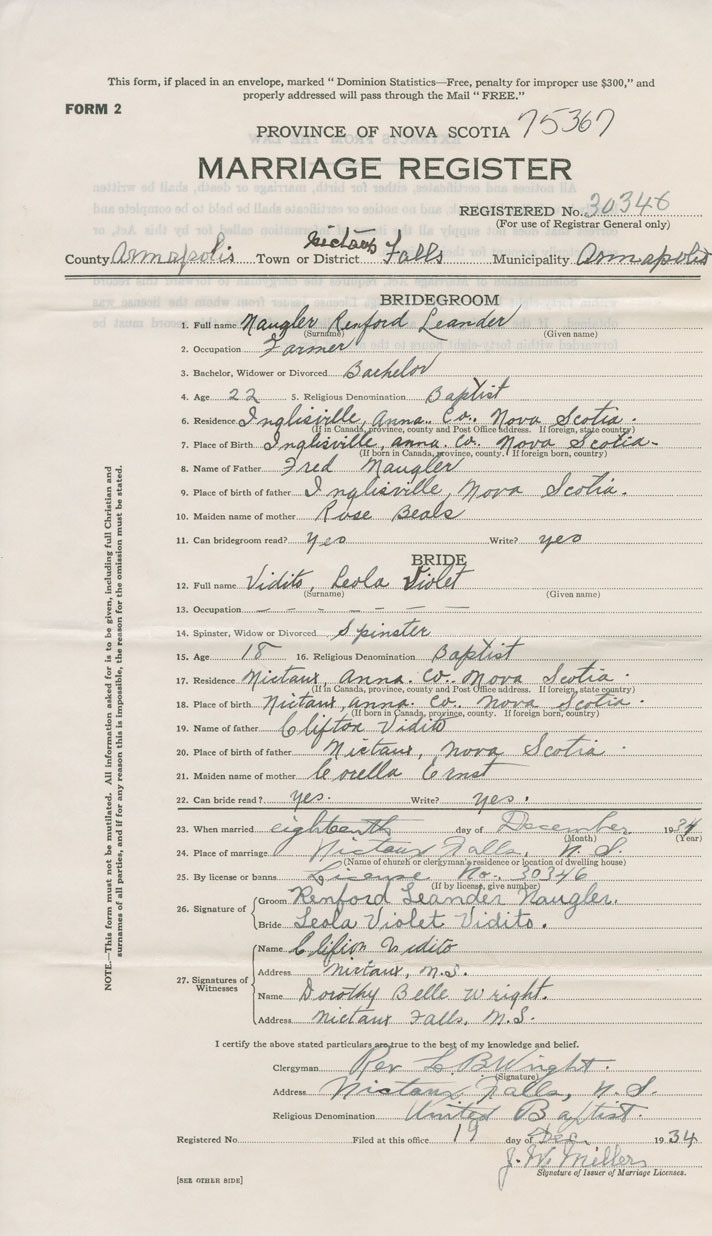 This form, if placed in an envelope, marked " Dominion Statistics—Free, penalty for improper use $300," and
properly addressed will pass through the Mail " FREE."
FORM 2
PROVINCE OF NOVA SCOTIA 75367
MARRIAGE REGISTER
REGISTERED No. 30346
(For use of Registrar General only)
County Annapolis Town or District Nictaux Falls Municipality Annapolis
BRIDEGROOM
1. Full name Naugler Renford Leander
(Surname) (Given name)
2. Occupation Farmer
3. Bachelor, Widower or Divorced Bachelor
4. Age 22 5. Religious Denomination Baptist
6. Residence Inglisville, Anna. Co., Nova Scotia.
(If in Canada, province, county and Post Office address. If foreign, state country)
7. Place of Birth Inglisville, anna. Co. Nova Scotia.
(If born in Canada, province, county. If foreign born, country)
8. Name of Father Fred Naugler
9. Place of birth of father Inglisville, Nova Scotia.
10. Maiden name of mother Rose Beals
11. Can bridegroom read? yes Write? yes
BRIDE
12. Full name Vidito, Leola Violet
(Surname) (Given name)
13. Occupation — — — — — —
14. Spinster, Widow or Divorced Spinster
15. Age 18 16. Religious Denomination Baptist
17. Residence Nictaux, Anna. Co. Nova Scotia.
(If in Canada, province, county and Post Office address. If foreign, state country)
18. Place of birth Nictaux, anna. Co. Nova Scotia.
(If born in Canada, province, county. If foreign born, country)
19. Name of father Clifton Vidito
20. Place of birth of father Nictaux, Nova Scotia.
21. Maiden name of mother Corella Ernst
22. Can bride read? yes. Write? yes.
23. When married eighteenth day of December 1934
(Month) (Year)
24. Place of marriage Nictaux Falls, N.S.
(Name of church or clergyman's residence or location of dwelling house)
25. By license or banns License No. 30346
(If by license, give number)
26. Signature of Groom Renford Leander Naugler.
Bride Leola Violet Vidito.
27. Signatures of Witnesses
Name Clifton Vidito
Address Nictaux, N.S.
Name Dorothy Belle Wright.
Address Nictaux Falls, N.S.
I certify the above stated particulars are true to the best of my knowledge and belief.
Clergyman Rev L B Wright.
(Signature)
Address Nictaux Falls, N.S.
Religious Denomination United Baptist.
Registered No. Filed at this office 19 day of Dec. 1934
J. W. Miller
Signature of Issuer of Marriage Licenses.
[SEE OTHER SIDE]
NOTE.—This form must not be mutilated. All information asked for is to be given, including full Christian and
surnames of all parties, and if for any reason this is impossible, the reason for the omission must be stated.